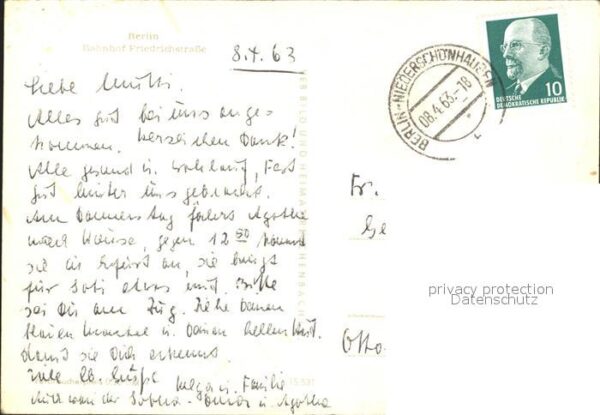 Berlin
Bahnhof Friedrichstraße
8.4.63
Liebe Mutti.
Alles gut bei uns ange-
kommen, herzlichen Dank!
Alle gesund u. wohlauf, Fest
gut hinter uns gebracht.
Am Donnerstag fährt Agathe
nach Hause, gegen 12 50 kommt
sie in Erfurt an, sie bringt
für etwas mit. Bitte
sei Du am Zug. Ziehe Deinen
blauen Mantel u. Deinen hellen Hut.
damit sie Dich erkennt.
viele lb. Grüße
Helga u. Familie
u. Agathe
VEB BILD UND HEIMAT REICHENBACH
BERLIN-NIEDERSCHÖNHAUSEN
08.4.63-18
DEUTSCHE
DEMOKRATISCHE REPUBLIK
10
Fr.
Ge
Otto-
privacy protection
Datenschutz